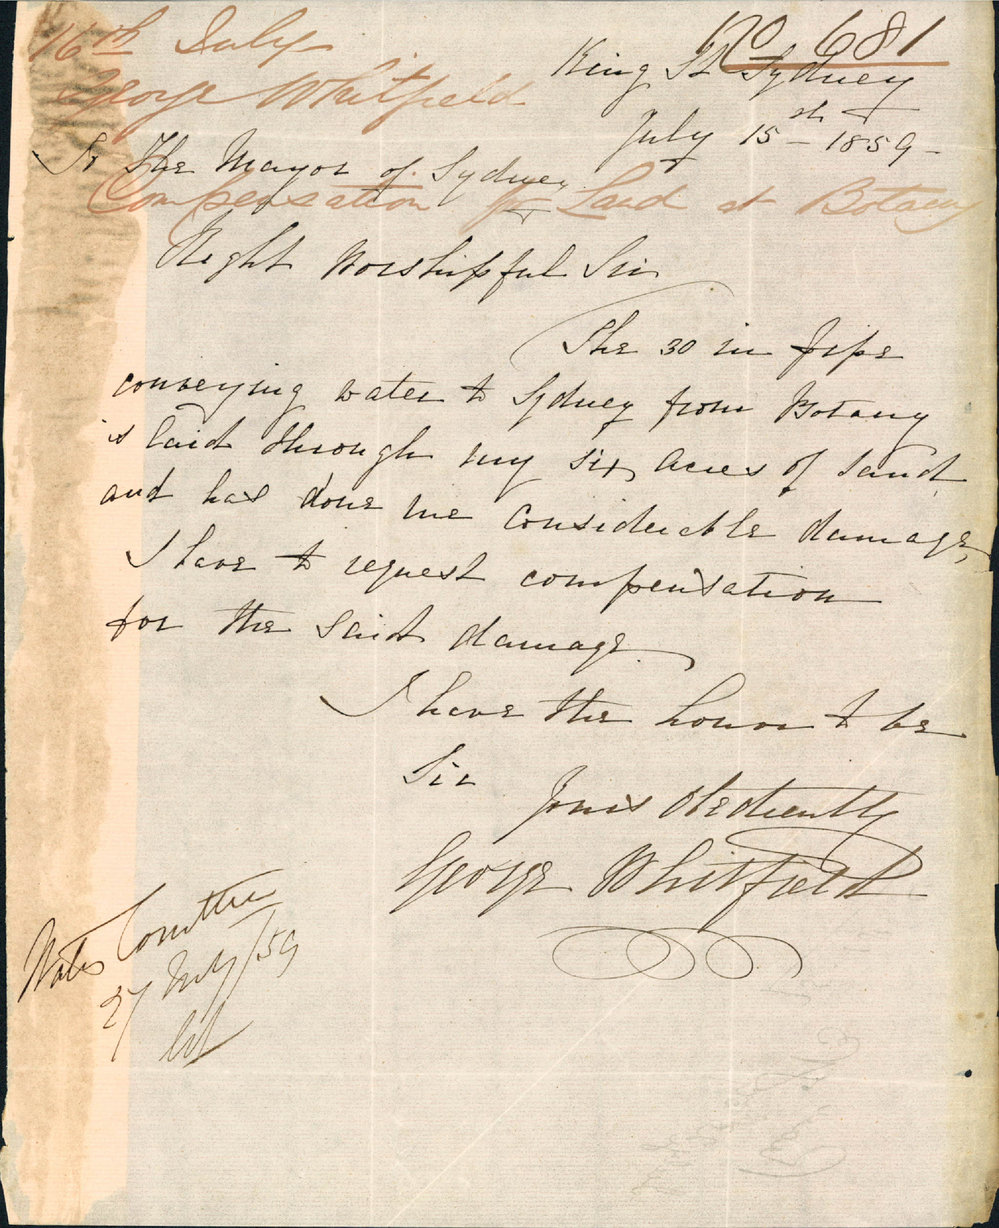 No 681
16th July
George Whitfield
Compensation for Land at Botany
King St Sydney
July 15th 1859
To The Mayor of Sydney
Right Worshipful Sir
The 30 in pipe
conveying water to Sydney from Botany
is laid through my six acres of land
and has done me considerable damage,
I have to request compensation
for the said damage
I have the honor to be
Sir
Yours Obediently
George Whitfield
Water Comttee
27 July/59